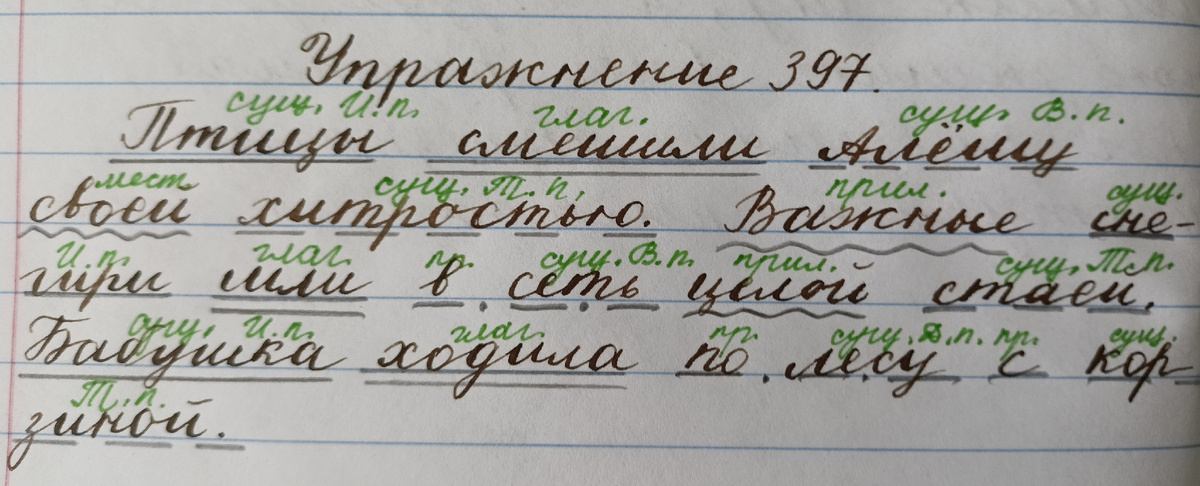 Упражнение 397.
сущ. И.п. глаг. сущ. В.п.
Птицы смешили Алёшу
мест. сущ. Т.п. прил. сущ.
своей хитростью. Важные сне-
И.п. глаг. пр. сущ. В.п. прил. сущ. Т.п.
гири шли в сеть целой стаей.
сущ. И.п. глаг. пр. сущ. Д.п. пр. сущ.
Бабушка ходила по лесу с кор
Т.п.
зиной.